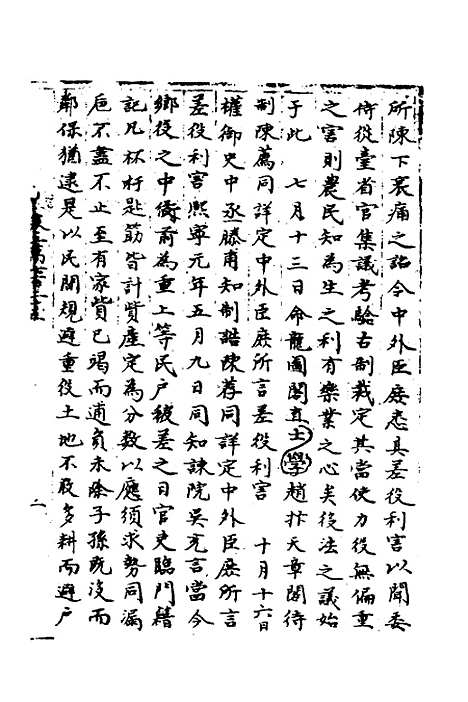 所陳下哀痛之詔令中外臣庶悉具差役利害以聞委
侍從臺省官集議考驗古制裁定其當使力役無偏重
之害則農民知為生之利有樂業之心矣役法之議始
于此　七月十三日命龍圖閣直士學趙抃天章閣待
制陳薦同詳定中外臣庶所言差役利害　十月十六日
權御史中丞滕甫知制誥陳荐同詳定中外臣庶所言
差役利害熙寧元年五月九日同知諫院吳充言當今
鄉役之中衙前為重上等民戶被差之日官吏臨門籍
記凡杯杅匙筯皆計貲產定為分數以應須求勢同漏
巵不盡不止至有家貲已竭而逋負未除子孫既沒而
鄰保猶逮是以民間規避重役土地不敢多耕而避戶
二